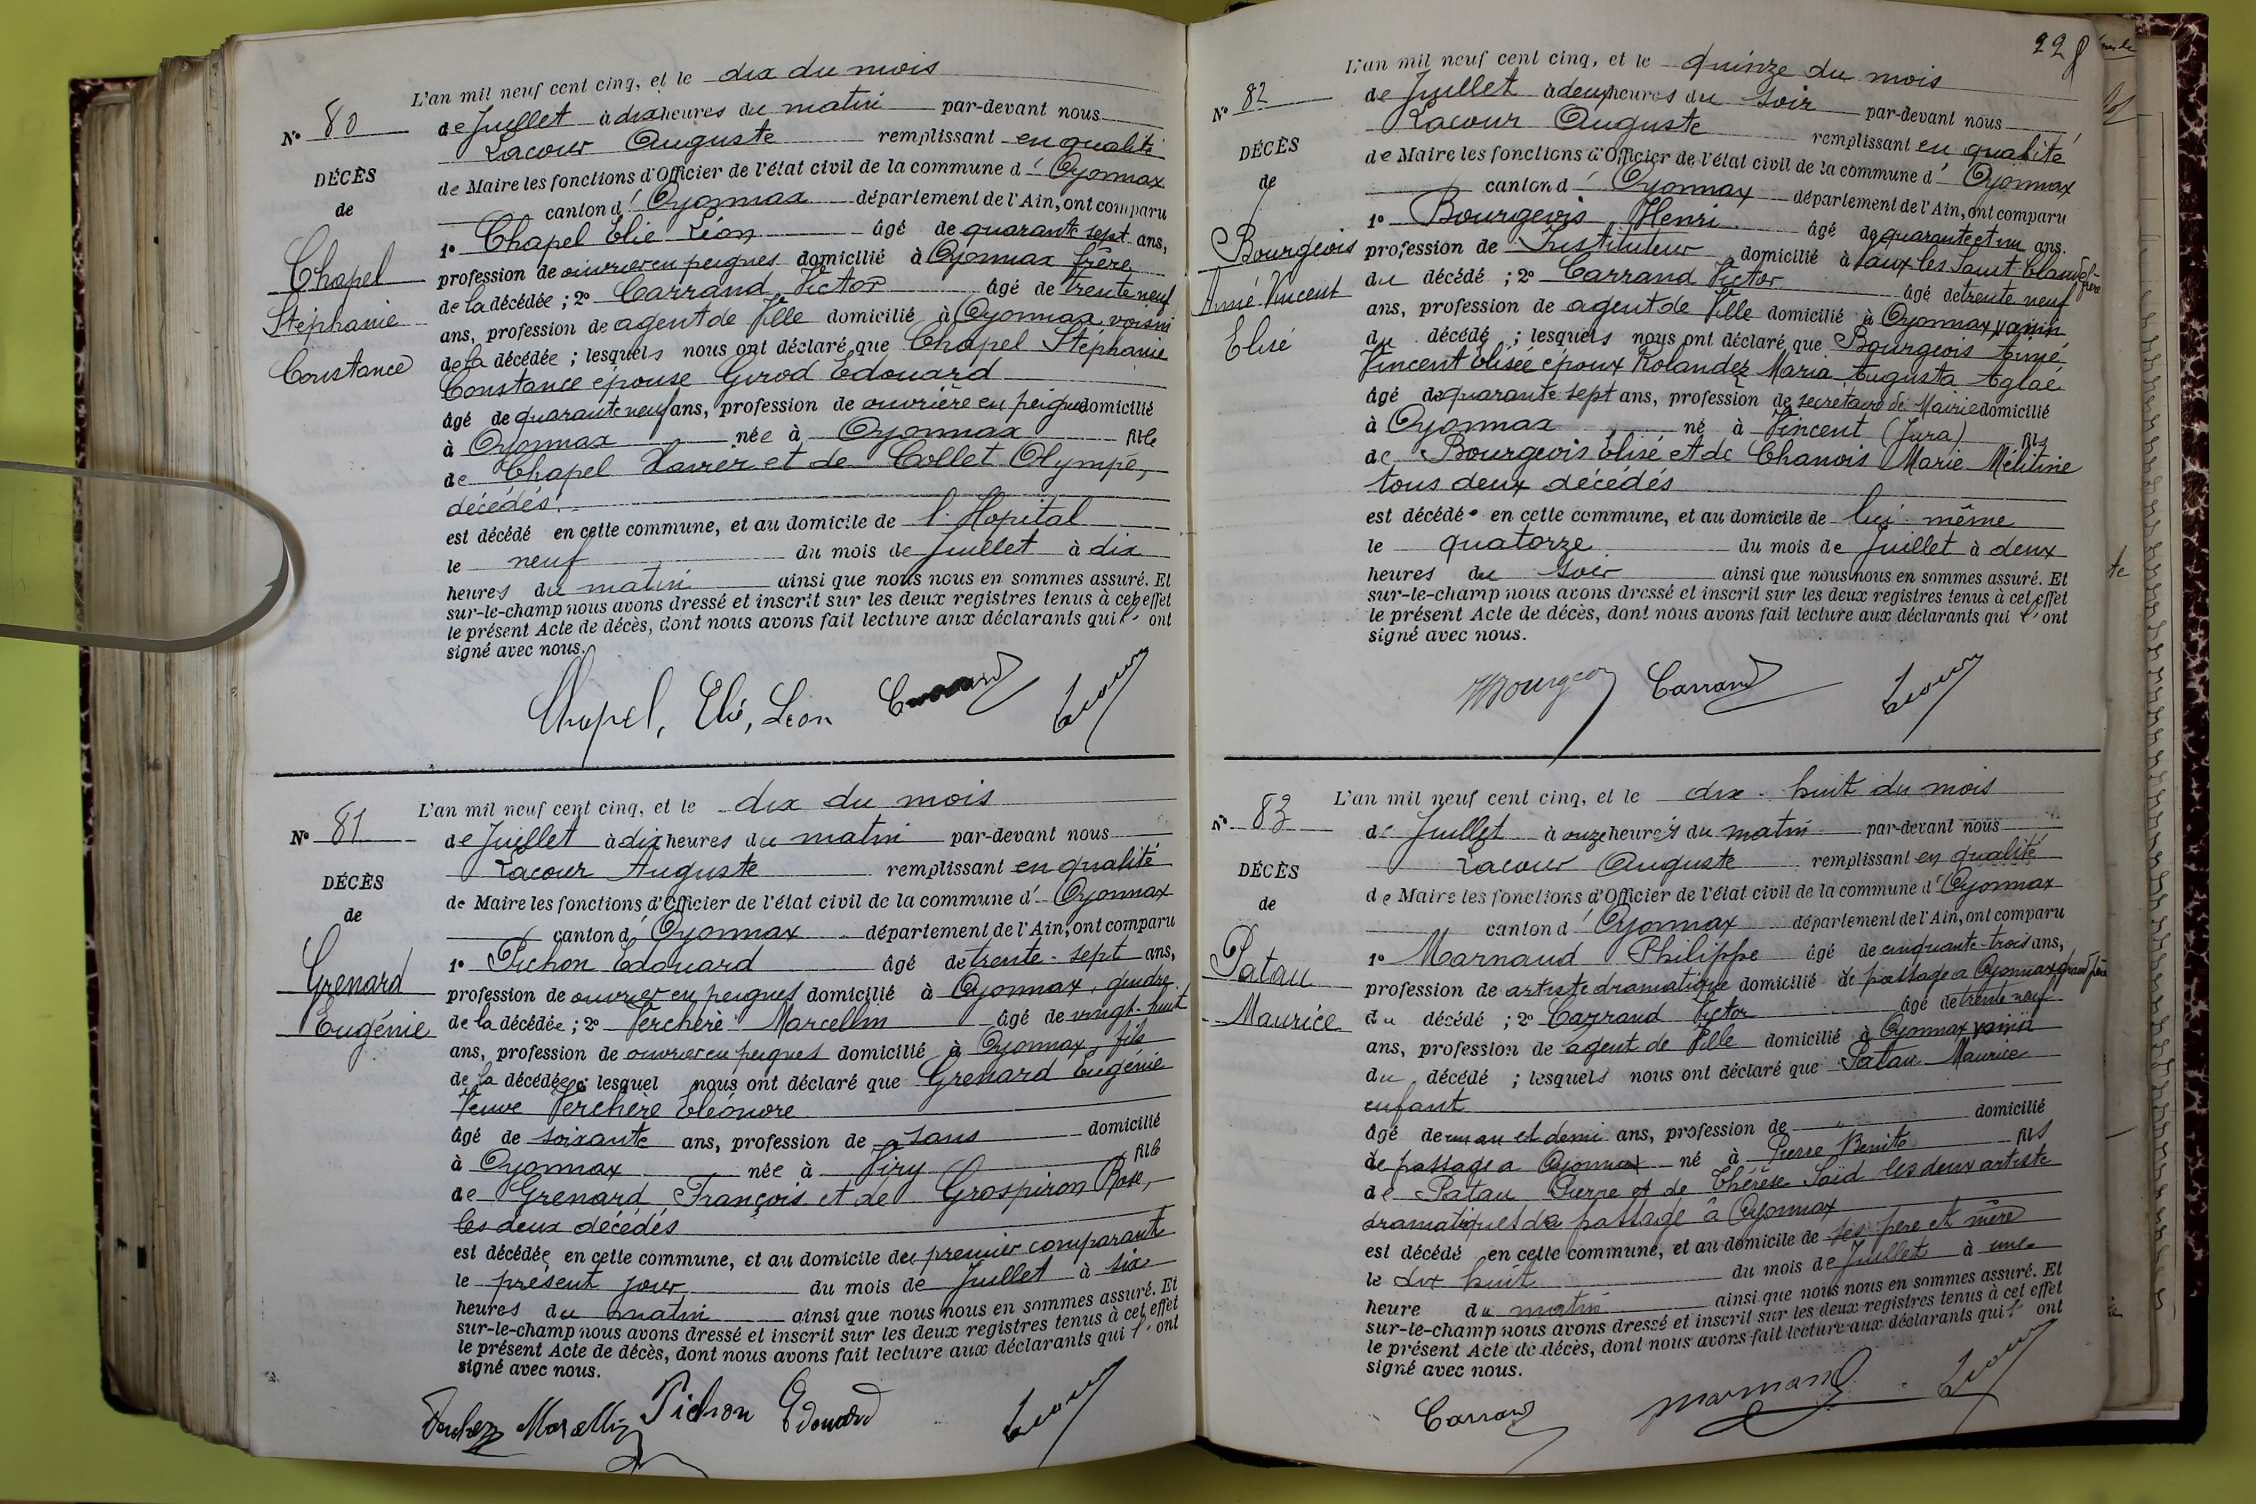 L'an mil neuf cent cinq, et le dix du mois
N° 80
de Juillet à dix heures du matin par-devant nous
Lacour Auguste remplissant en qualité
DÉCÈS
de Maire les fonctions d'Officier de l'état civil de la commune d' Oyonnax
de
canton d' Oyonnax département de l'Ain, ont comparu
1° Chapel Elie Léon âgé de quarante sept ans,
Chapel
profession de ouvrier en peignes domicilié à Oyonnax frère
Stéphanie
de la décédée ; 2° Carrand Victor âgé de trente neuf
ans, profession de agent de Ville domicilié à Oyonnax voisin
Constance
de la décédée ; lesquels nous ont déclaré que Chapel Stéphanie
Constance épouse Girod Edouard
âgé de quarante neuf ans, profession de ouvrière en peignes domicilié
à Oyonnax née à Oyonnax fille
de Chapel Xavier et de Collet Olympe,
décédés.
est décédé en cette commune, et au domicile de l'Hopital
le neuf du mois de Juillet à dix
heures du matin ainsi que nous nous en sommes assuré. Et
sur-le-champ nous avons dressé et inscrit sur les deux registres tenus à cet effet
le présent Acte de décès, dont nous avons fait lecture aux déclarants qui l' ont
signé avec nous.
Chapel, Elié, Léon Carrand Lacour
L'an mil neuf cent cinq, et le dix du mois
N° 81
de Juillet à dix heures du matin par-devant nous
Lacour Auguste remplissant en qualité
DÉCÈS
de Maire les fonctions d'Officier de l'état civil de la commune d' Oyonnax
de
canton d' Oyonnax département de l'Ain, ont comparu
1° Pichon Edouard âgé de trente-sept ans,
Grenard
profession de ouvrier en peignes domicilié à Oyonnax, gendre
Eugénie
de la décédée ; 2° Verchère Marcellin âgé de vingt-huit
ans, profession de ouvrier en peignes domicilié à Oyonnax, fils
de la décédée ; lesquel nous ont déclaré que Grenard Eugénie
Veuve Verchère Eléonore
âgé de soixante ans, profession de sans domicilié
à Oyonnax née à Viry fille
de Grenard François et de Grospiron Rose,
les deux décédés
est décédée en cette commune, et au domicile du premier comparant
le présent jour du mois de Juillet à six
heures du matin ainsi que nous nous en sommes assuré. Et
sur-le-champ nous avons dressé et inscrit sur les deux registres tenus à cet effet
le présent Acte de décès, dont nous avons fait lecture aux déclarants qui l' ont
signé avec nous.
Marcellin Pichon Edouard Lacour
228
L'an mil neuf cent cinq, et le quinze du mois
N° 82
de Juillet à deux heures du soir par-devant nous
Lacour Auguste remplissant en qualité
DÉCÈS
de Maire les fonctions d'Officier de l'état civil de la commune d' Oyonnax
de
canton d' Oyonnax département de l'Ain, ont comparu
1° Bourgeois Henri âgé de quarante et un ans.
Bourgeois
profession de Instituteur domicilié à Vaux les Saint Claude frère
Aimé Vincent
du décédé ; 2° Carrand Victor âgé de trente neuf
ans, profession de agent de Ville domicilié à Oyonnax voisin
Elisé
du décédé ; lesquels nous ont déclaré que Bourgeois Aimé
Vincent Elisée époux Rolandez Maria Augusta Aglaé
âgé de quarante sept ans, profession de secrétaire de Mairie domicilié
à Oyonnax né à Vincent (Jura) fils
de Bourgeois Elisé et de Chanois Marie Mélitine
tous deux décédés
est décédé en cette commune, et au domicile de lui-même
le quatorze du mois de Juillet à deux
heures du soir ainsi que nous nous en sommes assuré. Et
sur-le-champ nous avons dressé et inscrit sur les deux registres tenus à cet effet
le présent Acte de décès, dont nous avons fait lecture aux déclarants qui l' ont
signé avec nous.
HBourgeois Carrand Lacour
L'an mil neuf cent cinq, et le dix-huit du mois
N° 83
de Juillet à onze heures du matin par-devant nous
Lacour Auguste remplissant en qualité
DÉCÈS
de Maire les fonctions d'Officier de l'état civil de la commune d' Oyonnax
de
canton d' Oyonnax département de l'Ain, ont comparu
1° Marnaud Philippe âgé de cinquante-trois ans,
Patau
profession de artiste dramatique domicilié de passage a Oyonnax grand père
Maurice
du décédé ; 2° Carrand Victor âgé de trente neuf
ans, profession de agent de Ville domicilié à Oyonnax voisin
du décédé ; lesquels nous ont déclaré que Patau Maurice
enfant
âgé de un an et demi ans, profession de " domicilié
de passage a Oyonnax né à Pierre Benite fils
de Patau Pierre et de Thérèse Saïd les deux artiste
dramatiques de passage à Oyonnax
est décédé en cette commune, et au domicile de ses père et mère
le dix huit du mois de Juillet à une
heure du matin ainsi que nous nous en sommes assuré. Et
sur-le-champ nous avons dressé et inscrit sur les deux registres tenus à cet effet
le présent Acte de décès, dont nous avons fait lecture aux déclarants qui l' ont
signé avec nous.
Carrand Marnaud Lacour